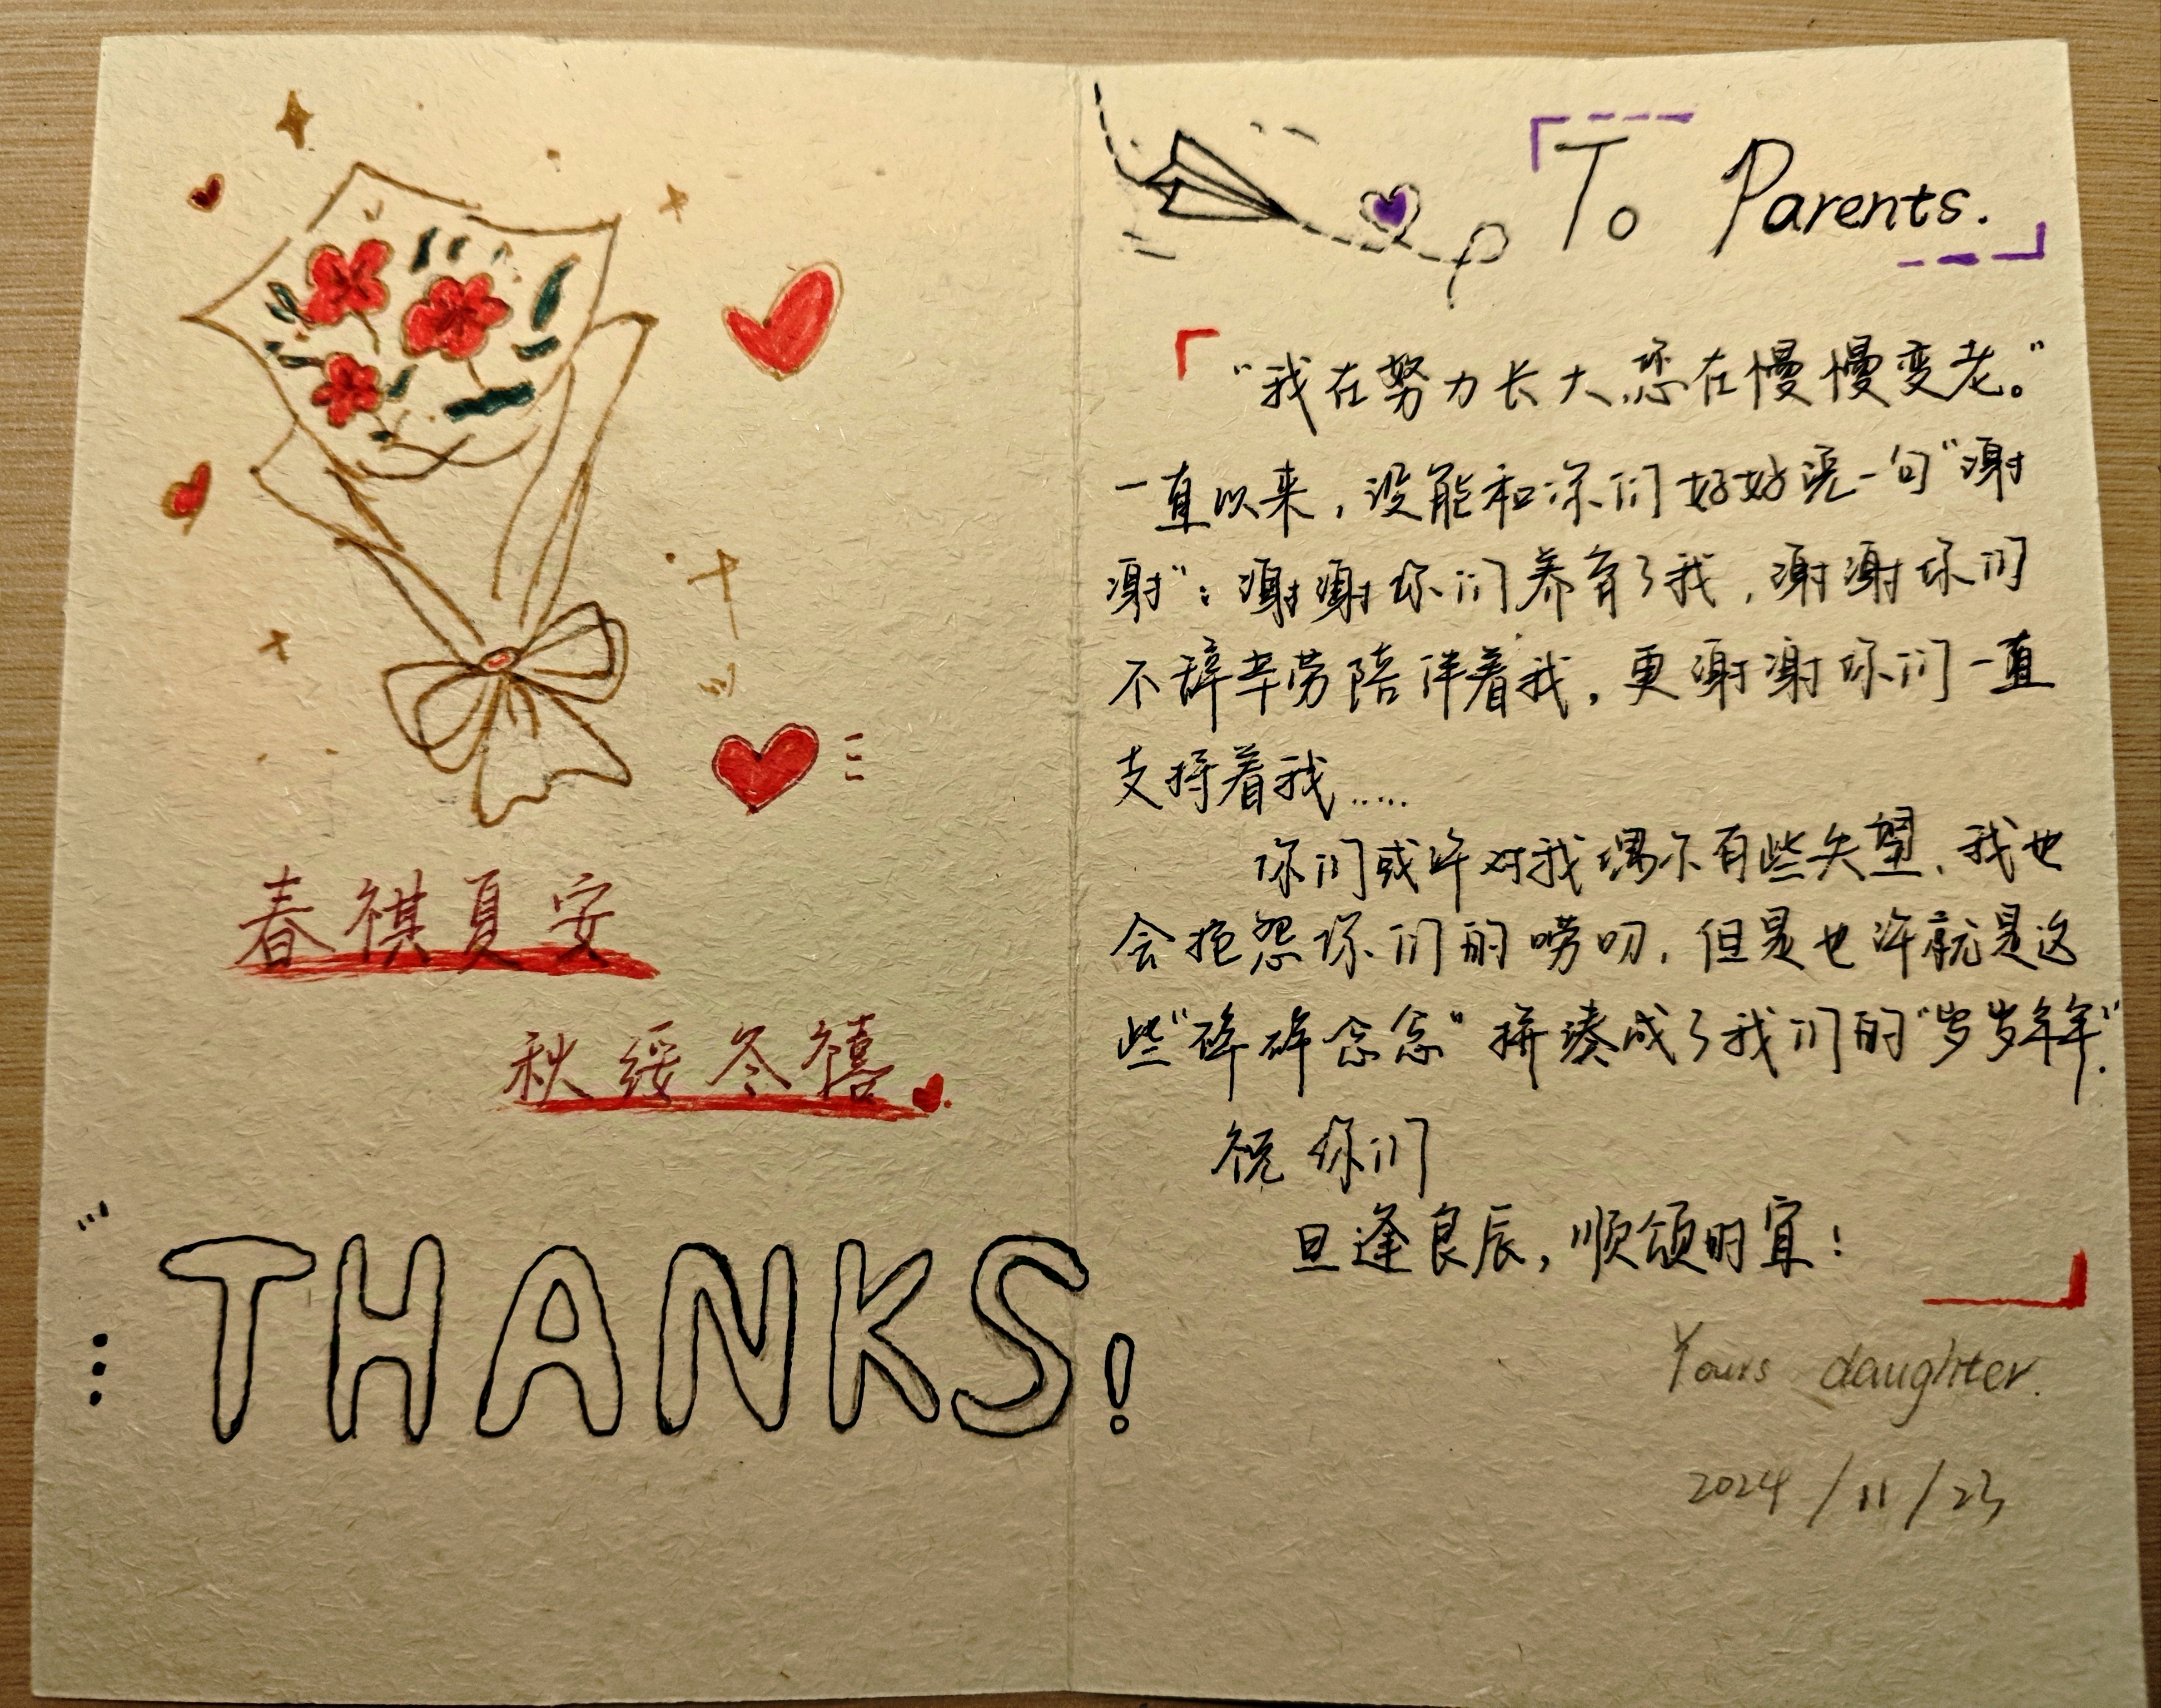 春祺夏安
秋绥冬禧
THANKS!
To Parents.
“我在努力长大,您在慢慢变老。”
一直以来,没能和你们好好说一句“谢
谢”:谢谢你们养育了我,谢谢你们
不辞辛劳陪伴着我,更谢谢你们一直
支持着我……
你们或许对我偶尔有些失望、我也
会抱怨你们的唠叨,但是也许就是这
些“碎碎念念”拼凑成了我们的“岁岁年年”.
祝你们
旦逢良辰,顺颂时宜!
Yours daughter.
2024/11/23